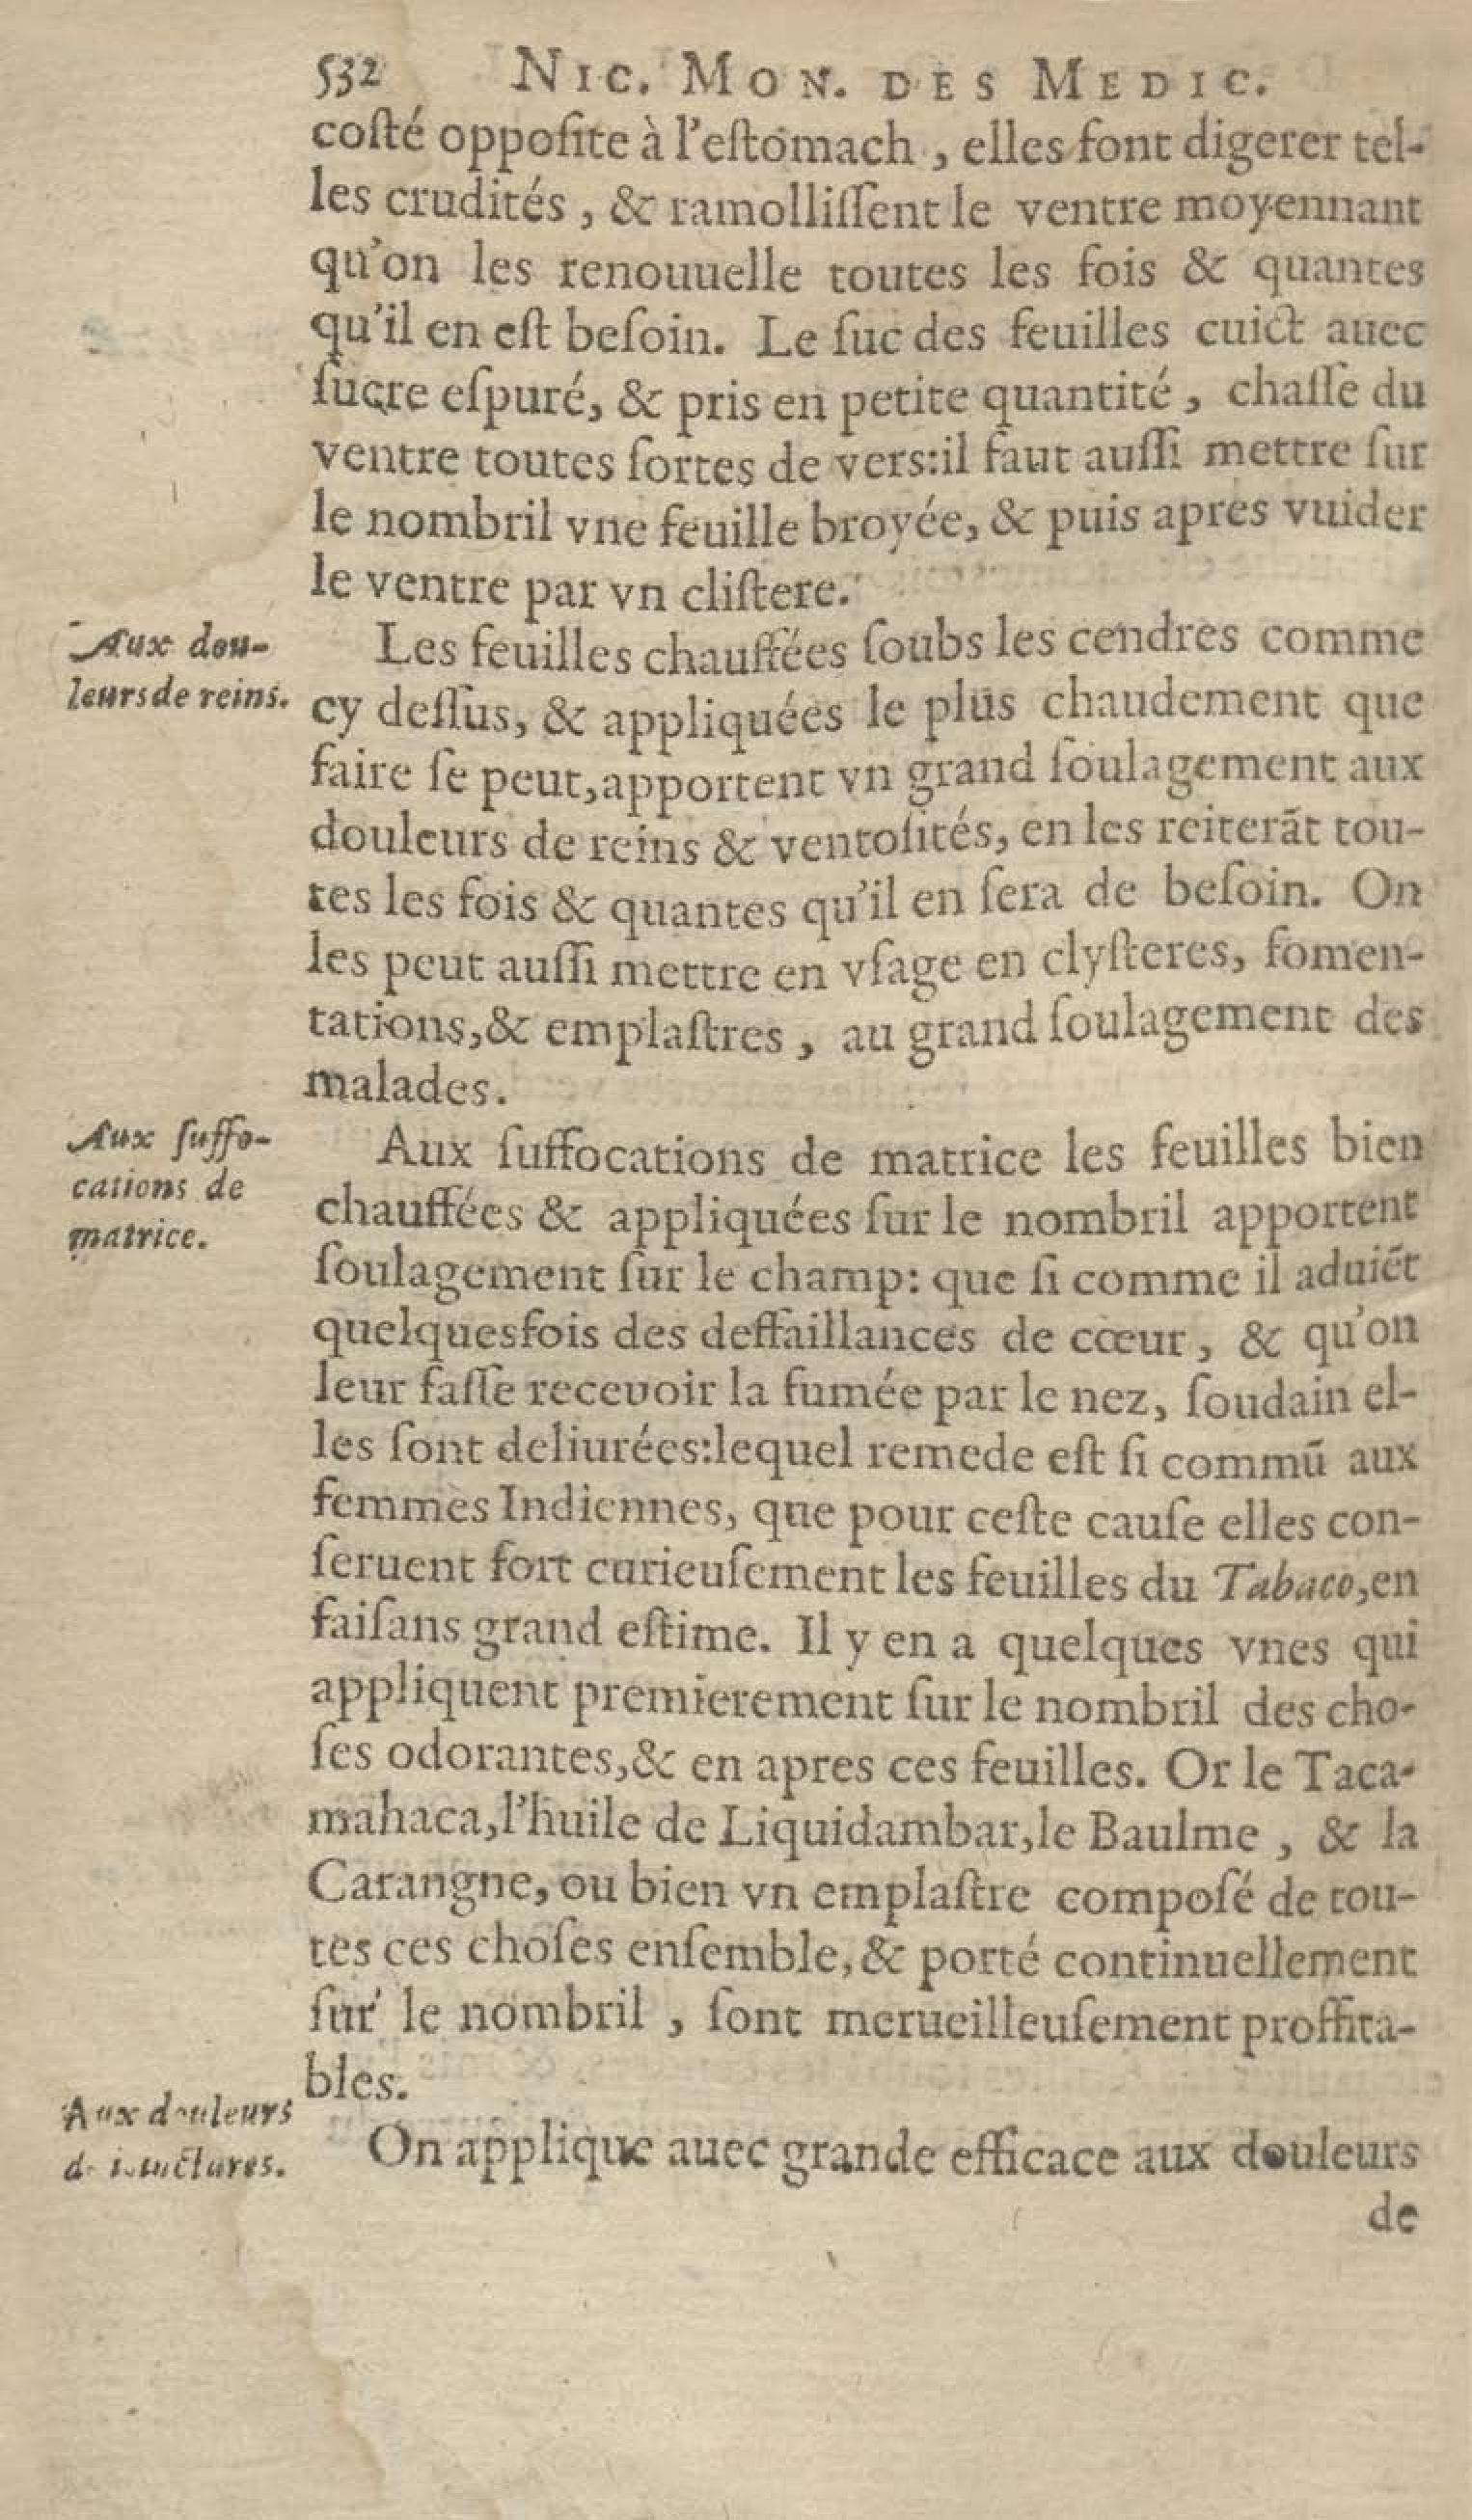 532 NIC. MON. DES MEDIC.
coſté oppoſite à l'eſtomach, elles font digerer tel-
les crudités, & ramolliſſent le ventre moyennant
qu'on les renouuelle toutes les fois & quantes
qu'il en eſt beſoin. Le ſuc des feuilles cuict auec
ſucre eſpuré, & pris en petite quantité, chaſſe du
ventre toutes ſortes de vers:il faut auſſi mettre ſur
le nombril vne feuille broyée, & puis apres vuider
le ventre par vn cliſtere.
Aux dou-
leurs de reins.
Les feuilles chauffées ſoubs les cendres comme
cy deſſus, & appliquées le plus chaudement que
faire ſe peut, apportent vn grand ſoulagement aux
douleurs de reins & ventoſités, en les reiterāt tou-
tes les fois & quantes qu'il en ſera de beſoin. On
les peut auſſi mettre en vſage en clyſteres, fomen-
tations,& emplaſtres, au grand ſoulagement des
malades.
Aux ſuffo-
cations de
matrice.
Aux ſuffocations de matrice les feuilles bien
chauffées & appliquées ſur le nombril apportent
ſoulagement ſur le champ: que ſi comme il aduiēt
quelquesfois des deffaillances de cœur, & qu'on
leur faſſe recevoir la fumée par le nez, ſoudain el-
les ſont deliurées:lequel remede eſt ſi commū aux
femmes Indiennes, que pour ceſte cauſe elles con-
ſeruent fort curieuſement les feuilles du Tabaco,en
faiſans grand eſtime. Il y en a quelques vnes qui
appliquent premierement ſur le nombril des cho-
ſes odorantes,& en apres ces feuilles. Or le Taca-
mahaca,l'huile de Liquidambar,le Baulme, & la
Carangne, ou bien vn emplaſtre compoſé de tou-
tes ces choſes enſemble,& porté continuellement
ſur le nombril, ſont merueilleuſement proffita-
bles.
Aux douleurs
de iunctures.
On applique auec grande efficace aux douleurs
de